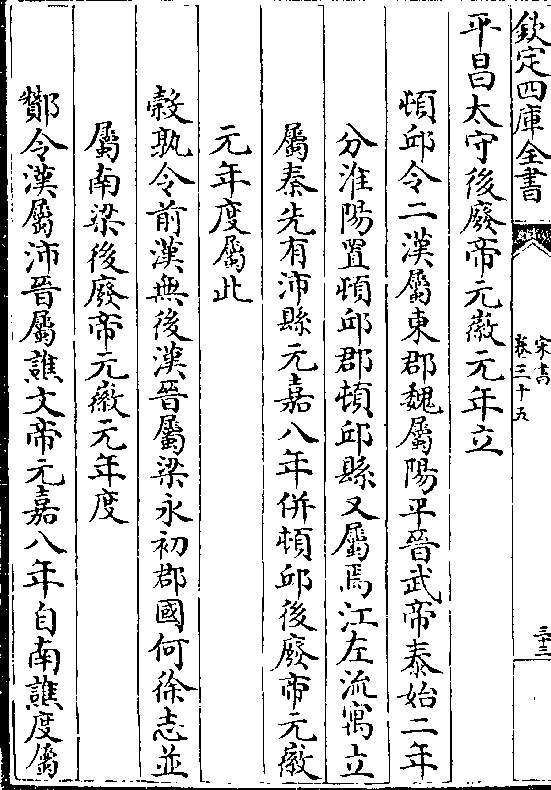 欽定四庫全書
宋書
卷三十五
三十三
平昌太守後廢帝元徽元年立
頓邱令二漢屬東郡魏屬陽平晉武帝泰始二年
分淮陽置頓邱郡頓邱縣又屬焉江左流寓立
屬秦先有沛縣元嘉八年併頓邱後廢帝元徽
元年度屬此
榖孰令前漢無後漢晉屬梁永初郡國何徐志並
屬南梁後廢帝元徽元年度
酇令漢屬沛晉屬譙文帝元嘉八年自南譙度屬